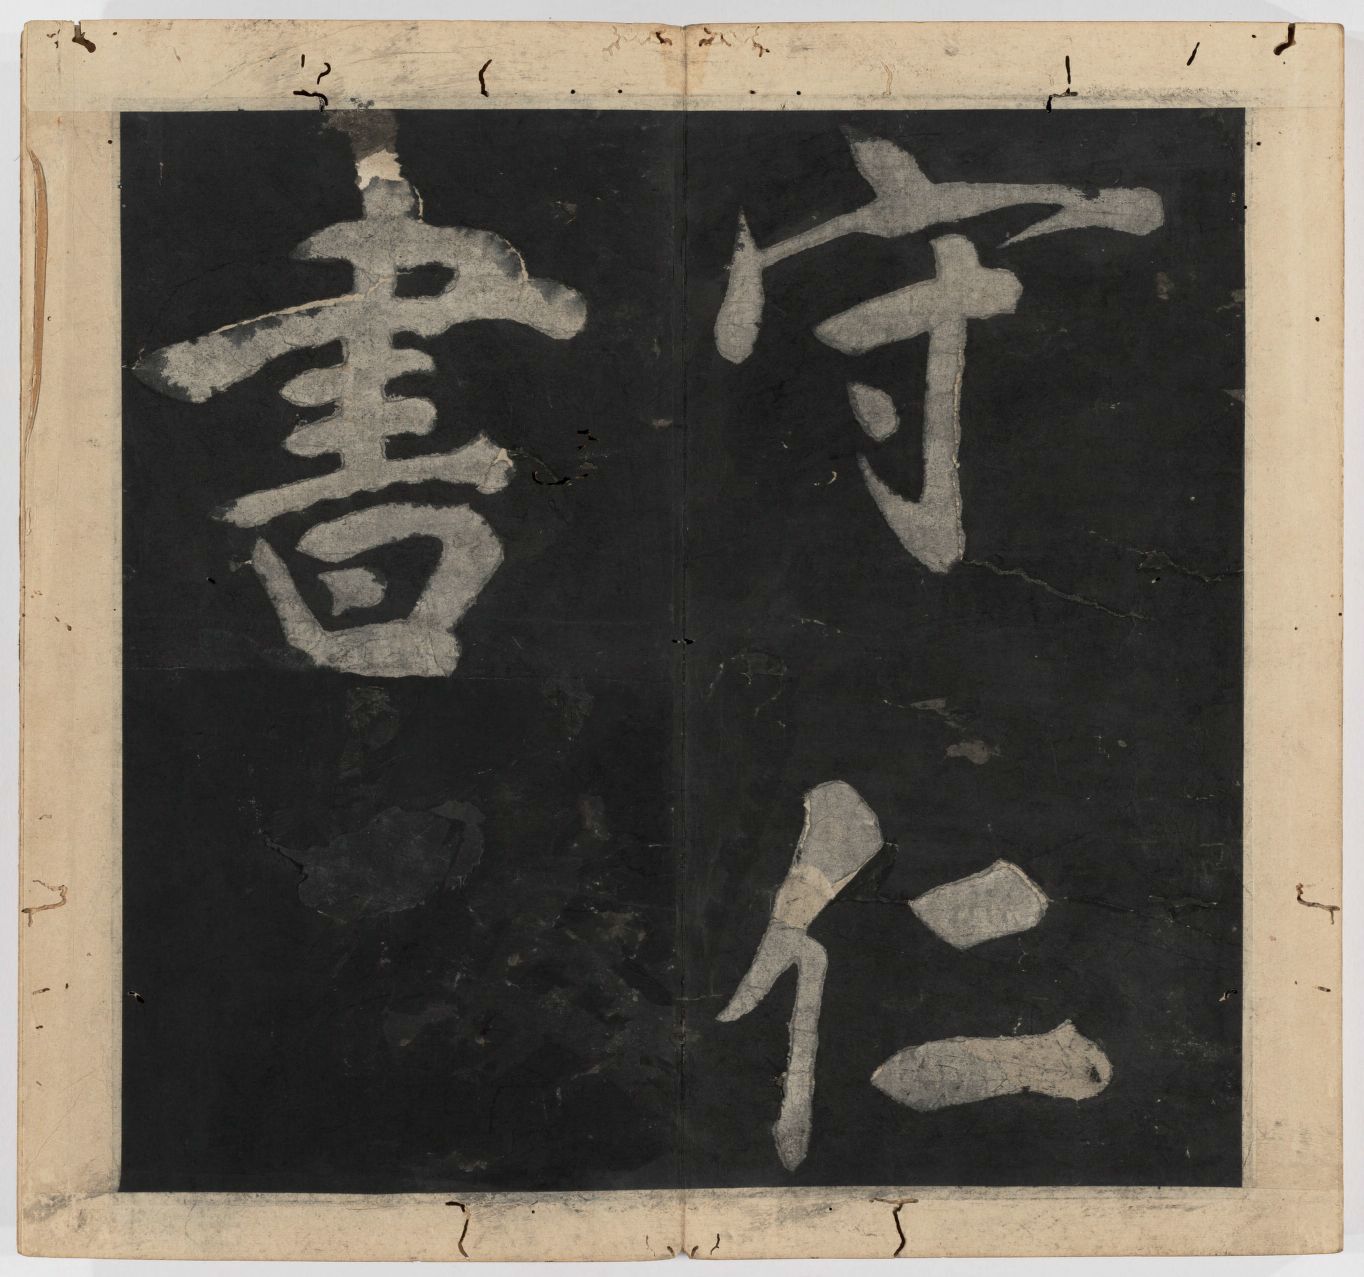 守仁
書